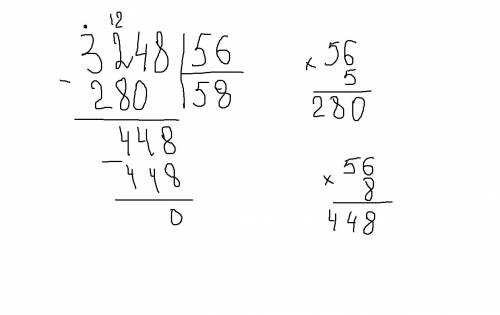 12
3248 | 56
- 280 | 58
448
- 448
0
× 56
5
280
× 56
8
448